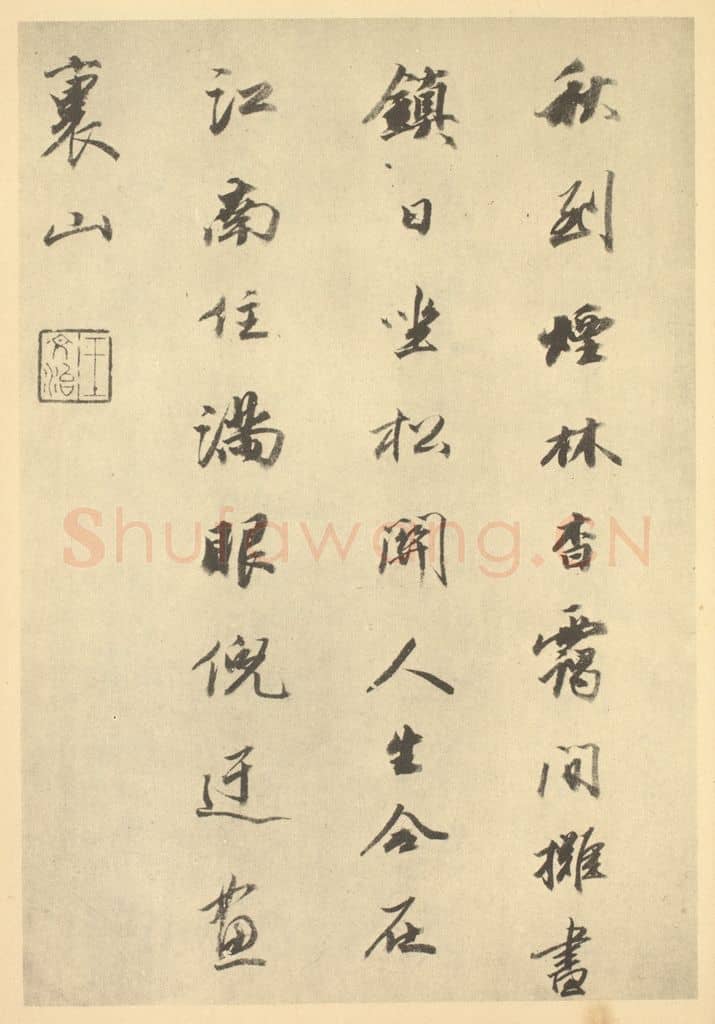 秋到煙林杳靄間攤書
鎮日坐松關人生合在
江南住滿眼倪迂畫
裏山
王文治
Shufawang.CN